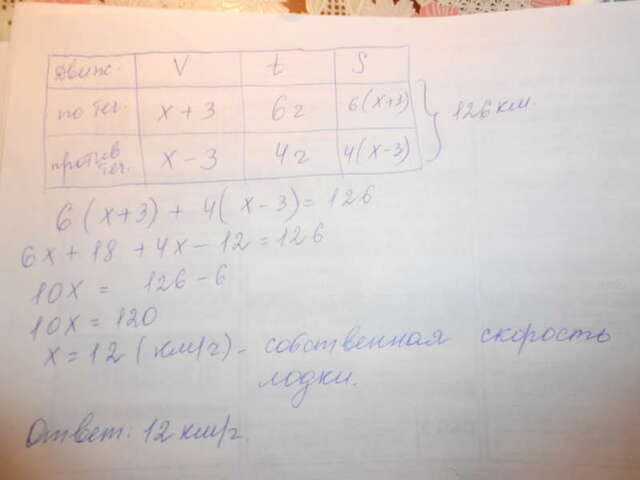 Движ. V t S
по теч. x + 3 6 ч 6(x+3)
против теч. x - 3 4 ч 4(x-3) } 126 км
6(x+3) + 4(x-3) = 126
6x + 18 + 4x - 12 = 126
10x = 126 - 6
10x = 120
x = 12 (км/ч) - собственная скорость
лодки.
Ответ: 12 км/ч.